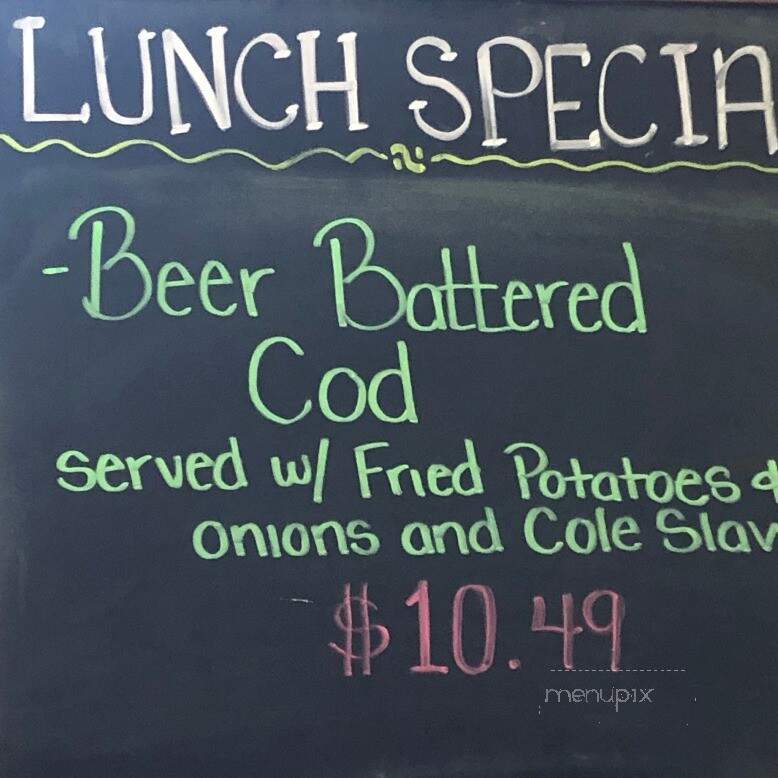 LUNCH SPECIA
-Beer Battered
Cod
served w/ Fried Potatoes &
onions and Cole Slaw
$10.49
menupix